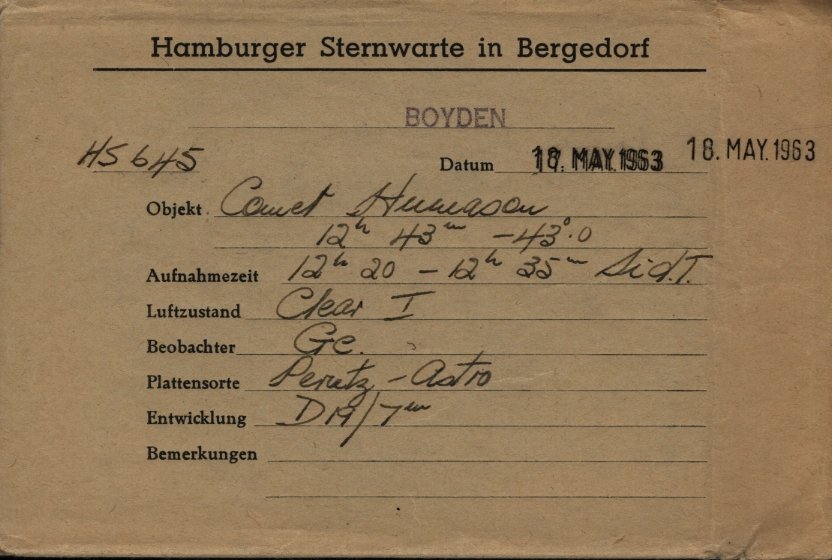 Hamburger Sternwarte in Bergedorf
BOYDEN
HS 645
Datum 18. MAY. 1963 18. MAY. 1963
Objekt Comet Humason
12h 43m -43°.0
Aufnahmezeit 12h 20 - 12h 35m Sid.T.
Luftzustand Clear I
Beobachter Ge.
Plattensorte Perutz - Astro
Entwicklung D19/7m
Bemerkungen